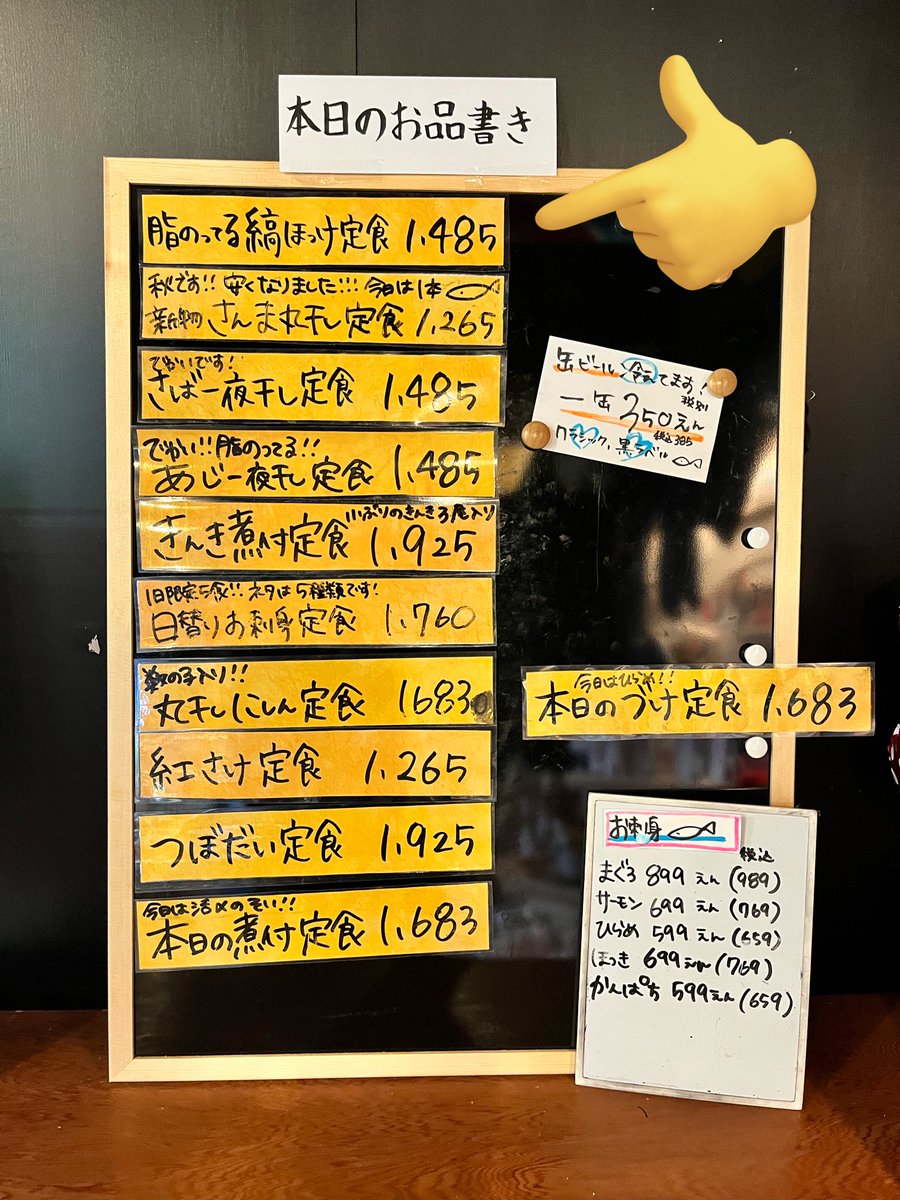 本日のお品書き
脂のってる縞ほっけ定食 1,485
秋です!! 安くなりました!!! 今日は1本
新物 さんま丸干し定食 1,265
でかいです!
さば一夜干し定食 1,485
でかい!! 脂のってる!!
あじ一夜干し定食 1,485
小ぶりのきんき3尾入り
きんき煮付定食 1,925
1日限定5食!! ネタは5種類です!
日替りお刺身定食 1,760
数の子入り!!
丸干しにしん定食 1683
紅さけ定食 1,265
つぼだい定食 1,925
今日は活〆のそい!!
本日の煮付定食 1,683
缶ビール冷えてます!
税別
一缶350えん
税込385
クラシック、黒ラベル
今日はひらめ!!
本日のづけ定食 1,683
お刺身
税込
まぐろ 899えん (989)
サーモン 699えん (769)
ひらめ 599えん (659)
ほっき 699えん (769)
かんぱち 599えん (659)